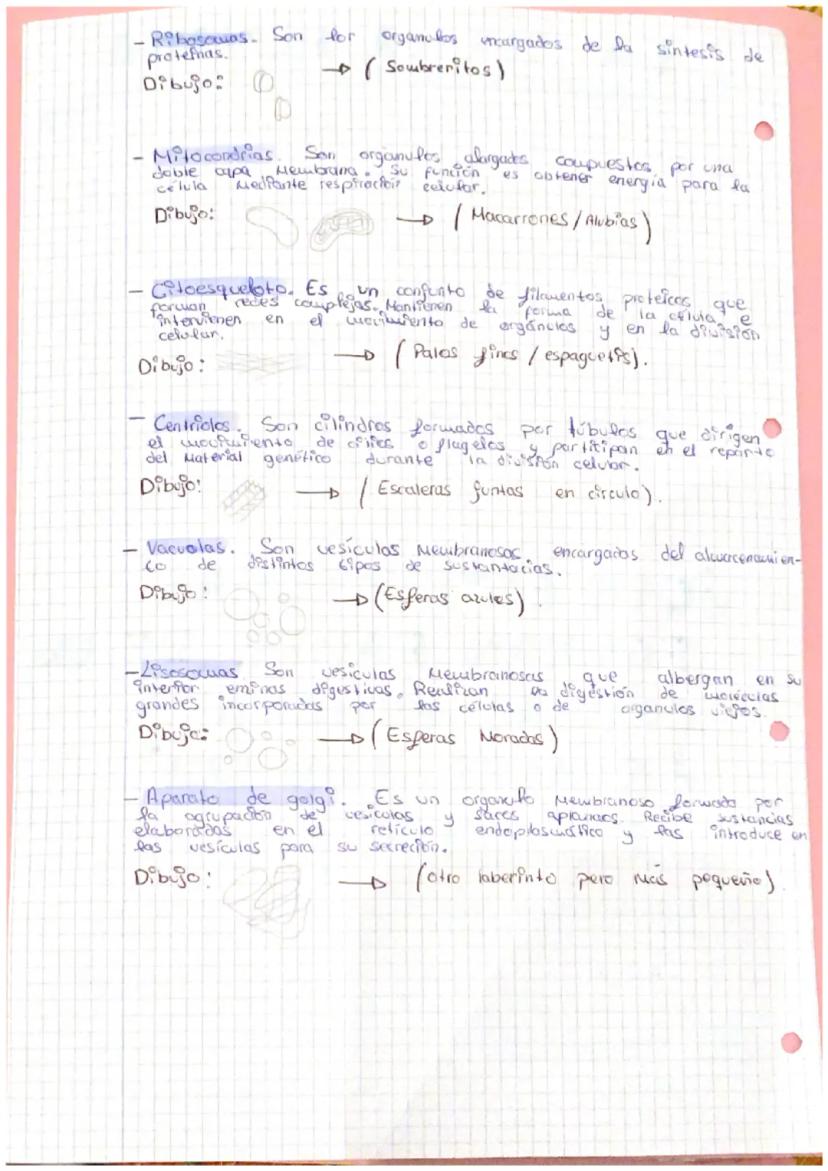 - Ribosomas. Son lor organulos encargados de la síntesis de
proteínas.
Dibujo: → (Sombreritos)
- Mitocondrias. Son organulos alargados compuestos por una
doble capa membrana. Su función es obtener energía para la
célula mediante respiración celular.
Dibujo: → (Macarrones/Alubias)
- Citoesqueloto. Es un conjunto de filamentos proteicos que
forman redes complejas. Mantienen la forma de la célula e
intervienen en el movimiento de orgánulos y en la división
celular.
Dibujo: → (Palos finos / espaguetis).
- Centriolos. Son cilindros formados por túbulos que dirigen
el movimiento de cilios o flagelos y partitipan en el reparto
del material genético durante la división celular.
Dibujo: → (Escaleras juntas en círculo).
- Vacuolas. Son vesículos membranosos encargados del almacenamien-
to de distintos tipos de sustantacias.
Dibujo: → (Esferas azules).
- Lisosomas Son vesiculas membranosas que albergan en su
interior eminas digestivas. Realizan la digestión de moléculas
grandes incorporadas por las células o de organulos viejos.
Dibujo: → (Esperas Moradas)
- Aparato de golgi. Es un organulo membranoso formado por
la agrupación de vesículas y sacos aplanaos. Recibe sustancias
elaboradas en el retículo endoplasmático y las introduce en
las vesículas para su secreción.
Dibujo: → (otro laberinto pero más pequeño).